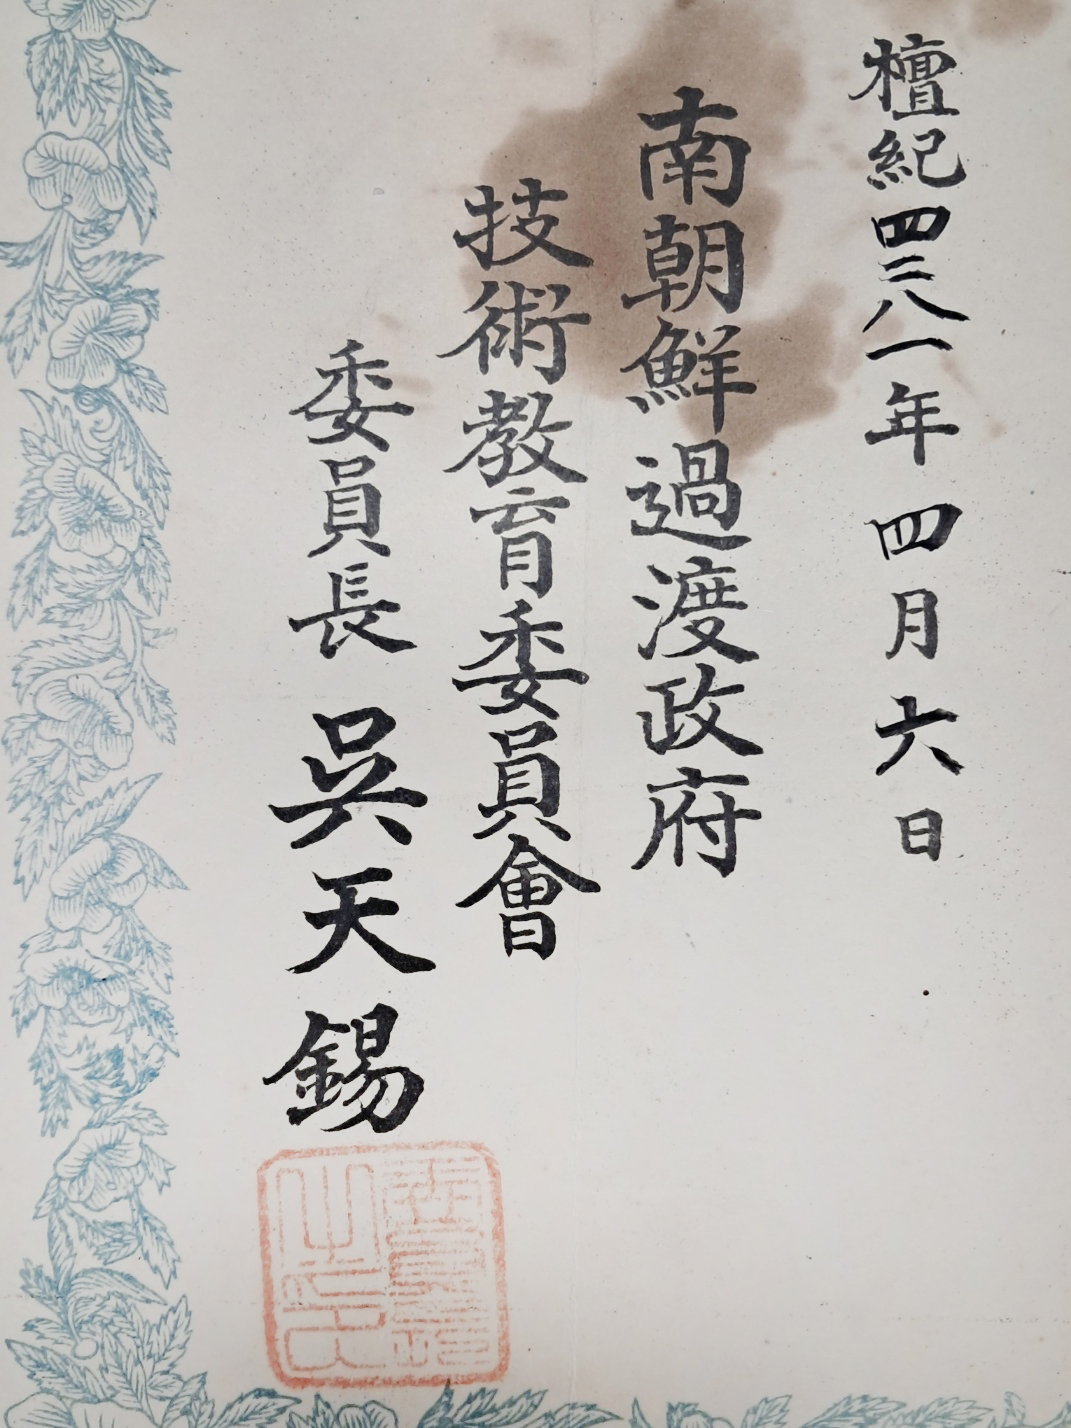 檀紀四二八一年 四月六日
南朝鮮過渡政府
技術敎育委員會
委員長 吳天錫